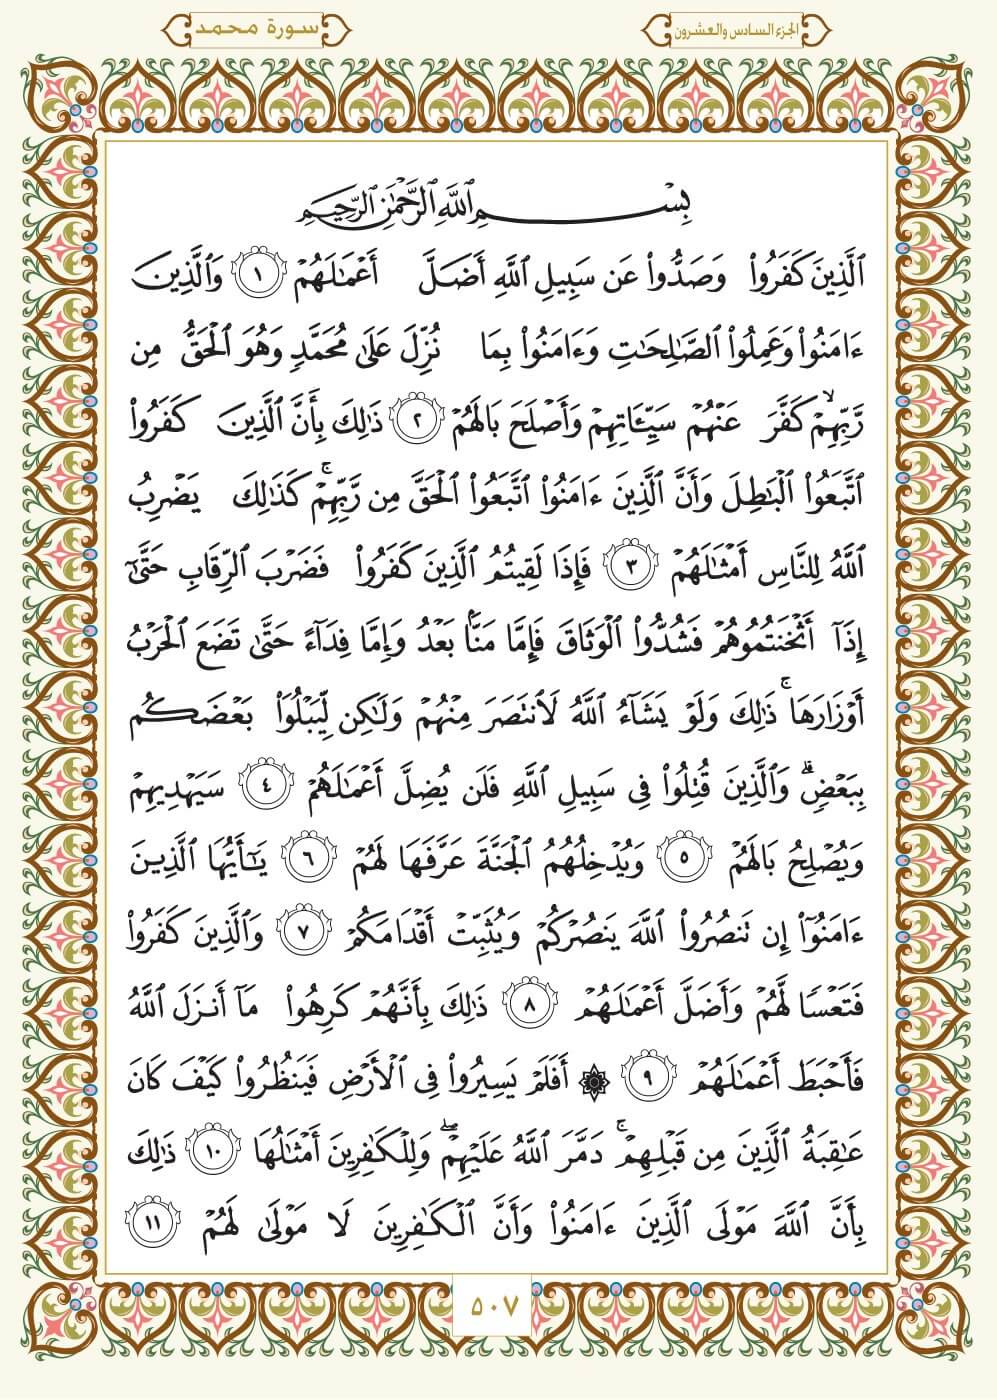 الجزء السادس والعشرون
سورة محمد
بِسْمِ ٱللَّهِ ٱلرَّحْمَٰنِ ٱلرَّحِيمِ
ٱلَّذِينَ كَفَرُوا۟ وَصَدُّوا۟ عَن سَبِيلِ ٱللَّهِ أَضَلَّ أَعْمَٰلَهُمْ ١ وَٱلَّذِينَ
ءَامَنُوا۟ وَعَمِلُوا۟ ٱلصَّٰلِحَٰتِ وَءَامَنُوا۟ بِمَا نُزِّلَ عَلَىٰ مُحَمَّدٍ وَهُوَ ٱلْحَقُّ مِن
رَّبِّهِمْ ۙ كَفَّرَ عَنْهُمْ سَيِّـَٔاتِهِمْ وَأَصْلَحَ بَالَهُمْ ٢ ذَٰلِكَ بِأَنَّ ٱلَّذِينَ كَفَرُوا۟
ٱتَّبَعُوا۟ ٱلْبَٰطِلَ وَأَنَّ ٱلَّذِينَ ءَامَنُوا۟ ٱتَّبَعُوا۟ ٱلْحَقَّ مِن رَّبِّهِمْ ۚ كَذَٰلِكَ يَضْرِبُ
ٱللَّهُ لِلنَّاسِ أَمْثَٰلَهُمْ ٣ فَإِذَا لَقِيتُمُ ٱلَّذِينَ كَفَرُوا۟ فَضَرْبَ ٱلرِّقَابِ حَتَّىٰٓ
إِذَآ أَثْخَنتُمُوهُمْ فَشُدُّوا۟ ٱلْوَثَاقَ فَإِمَّا مَنًّۢا بَعْدُ وَإِمَّا فِدَآءً حَتَّىٰ تَضَعَ ٱلْحَرْبُ
أَوْزَارَهَا ۚ ذَٰلِكَ وَلَوْ يَشَآءُ ٱللَّهُ لَٱنتَصَرَ مِنْهُمْ وَلَٰكِن لِّيَبْلُوَا۟ بَعْضَكُم
بِبَعْضٍ ۗ وَٱلَّذِينَ قُتِلُوا۟ فِى سَبِيلِ ٱللَّهِ فَلَن يُضِلَّ أَعْمَٰلَهُمْ ٤ سَيَهْدِيهِمْ
وَيُصْلِحُ بَالَهُمْ ٥ وَيُدْخِلُهُمُ ٱلْجَنَّةَ عَرَّفَهَا لَهُمْ ٦ يَٰٓأَيُّهَا ٱلَّذِينَ
ءَامَنُوٓا۟ إِن تَنصُرُوا۟ ٱللَّهَ يَنصُرْكُمْ وَيُثَبِّتْ أَقْدَامَكُمْ ٧ وَٱلَّذِينَ كَفَرُوا۟
فَتَعْسًا لَّهُمْ وَأَضَلَّ أَعْمَٰلَهُمْ ٨ ذَٰلِكَ بِأَنَّهُمْ كَرِهُوا۟ مَآ أَنزَلَ ٱللَّهُ
فَأَحْبَطَ أَعْمَٰلَهُمْ ٩ ۞ أَفَلَمْ يَسِيرُوا۟ فِى ٱلْأَرْضِ فَيَنظُرُوا۟ كَيْفَ كَانَ
عَٰقِبَةُ ٱلَّذِينَ مِن قَبْلِهِمْ ۚ دَمَّرَ ٱللَّهُ عَلَيْهِمْ ۖ وَلِلْكَٰفِرِينَ أَمْثَٰلُهَا ١٠ ذَٰلِكَ
بِأَنَّ ٱللَّهَ مَوْلَى ٱلَّذِينَ ءَامَنُوا۟ وَأَنَّ ٱلْكَٰفِرِينَ لَا مَوْلَىٰ لَهُمْ ١١
٥٠٧